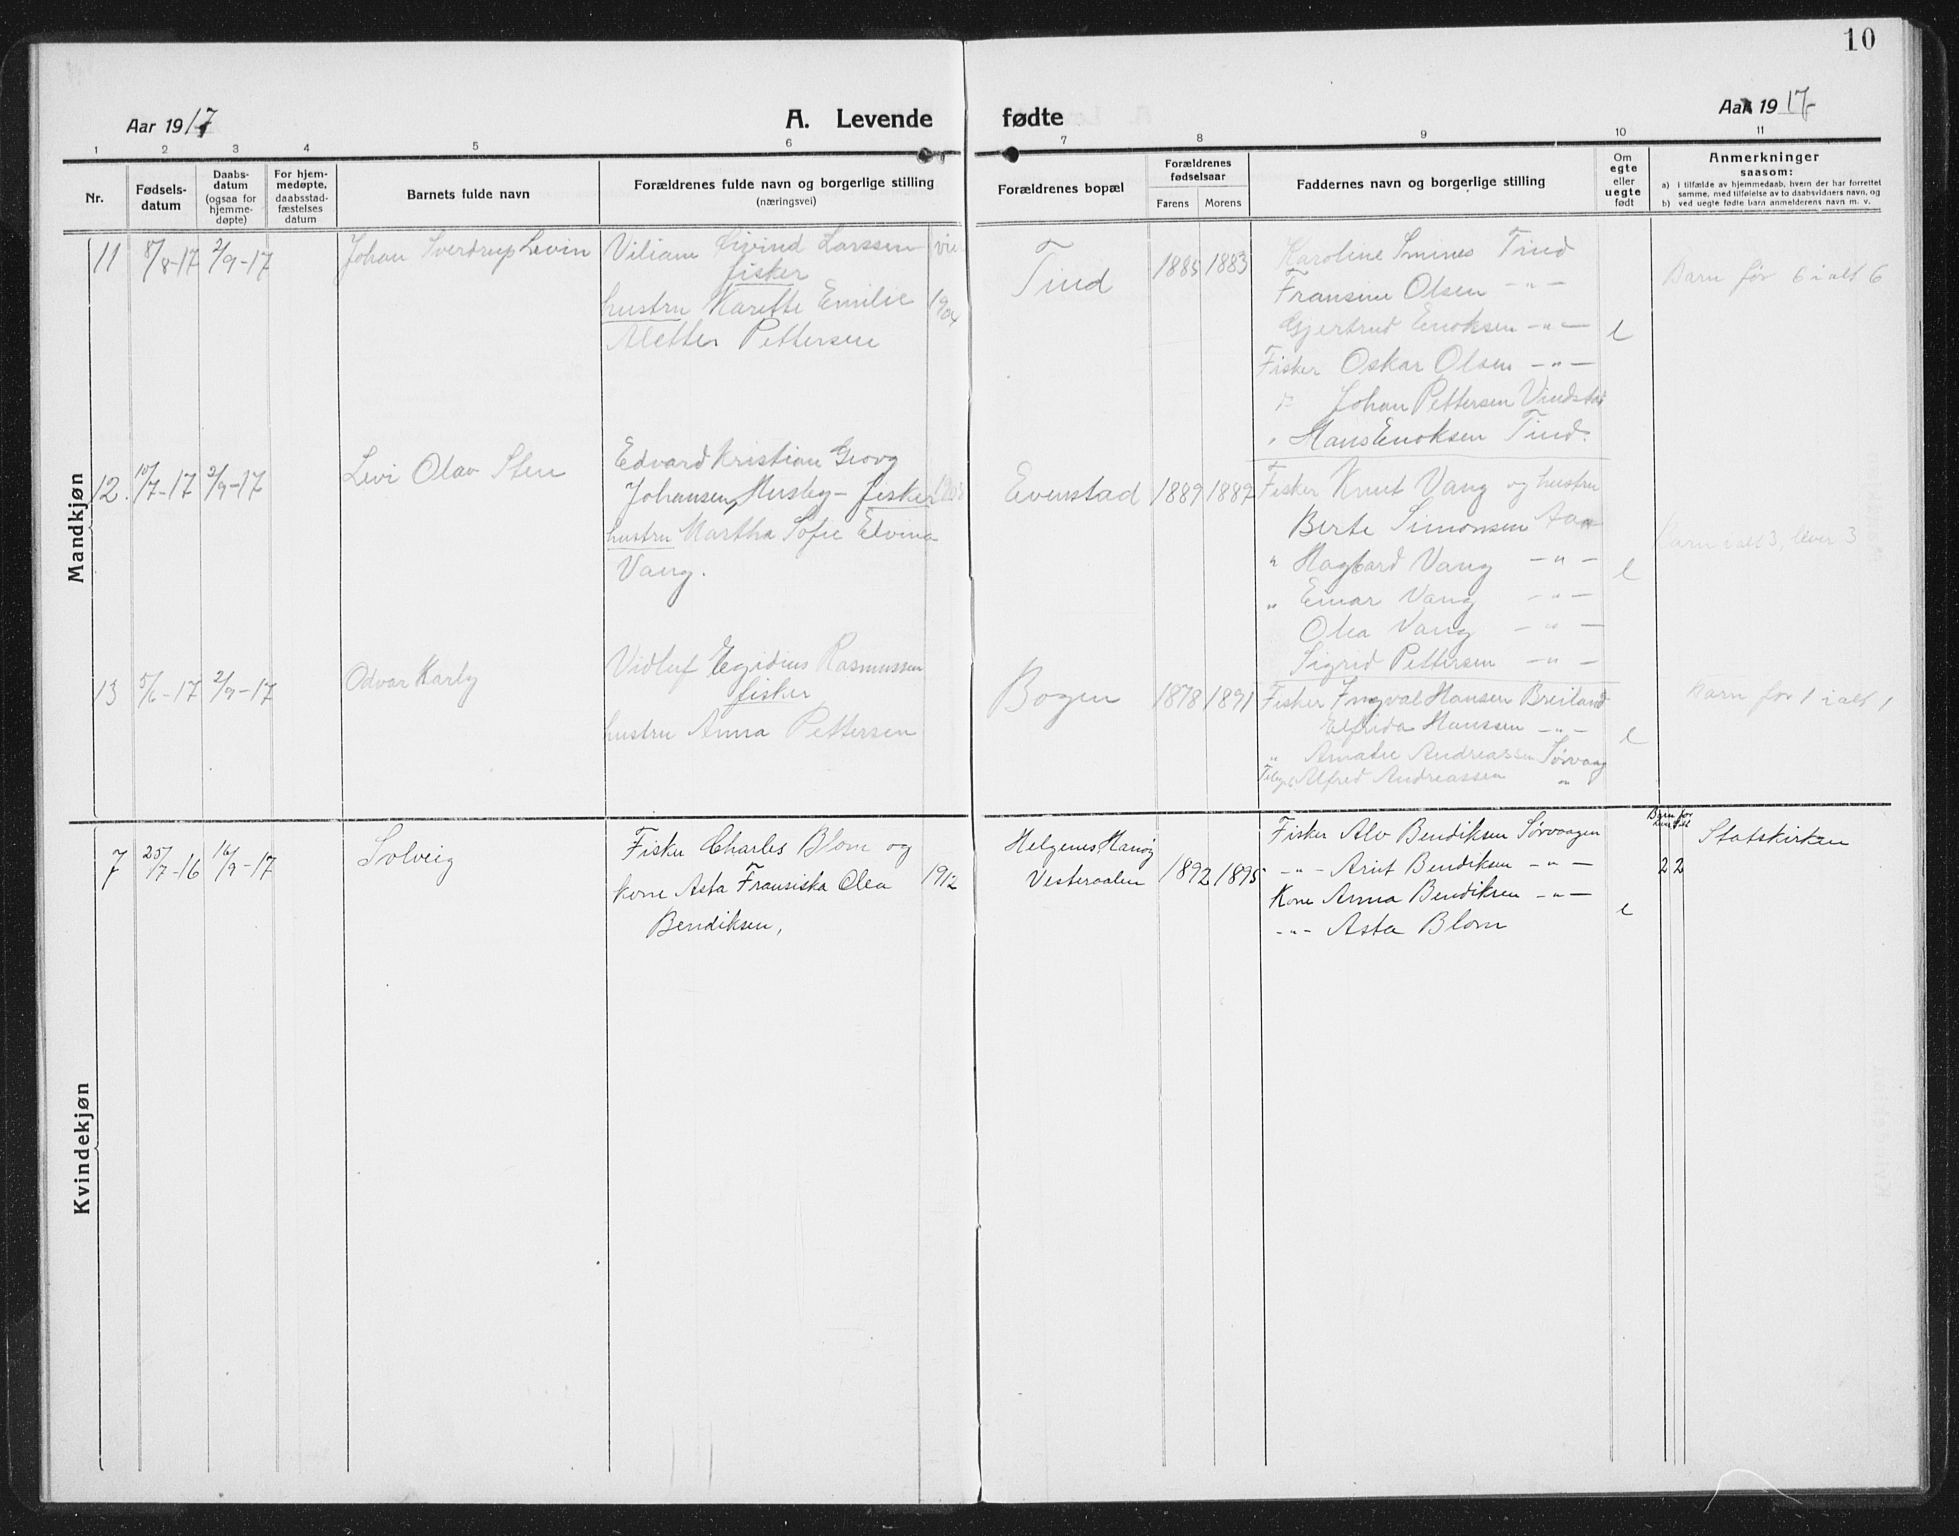 10
Aar 1917
A. Levende fødte
Aar 1917
1 2 3 4 5 6 7 8 9 10 11
Nr.
Fødsels-
datum
Daabs-
datum
(ogsaa for
hjemme-
døpte)
For hjem-
medøpte,
daabsstad-
fæstelses
datum
Barnets fulde navn
Forældrenes fulde navn og borgerlige stilling
(næringsvei)
Forældrenes bopæl
Forældrenes
fødselsaar
Farens Morens
Faddernes navn og borgerlige stilling
Om
egte
eller
uegte
født
Anmerkninger
saasom:
a) i tilfælde av hjemmedaab, hvem der har forrettet
samme, med tilføielse av to daabsvidners navn, og
b) ved uegte fødte barn anmelderens navn m. v.
Mandkjøn
11 8/8-17 2/9-17
Johan Sverdrup Levin
Viliam Eivind Larssen
fisker
hustru Karette Emilie
Aletter Pettersen
vie
1904
Tind
1885 1883
Karoline Tind
Fransine Olsen -"-
Gjertrud Enoksen -"-
Fisker Oskar Olsen -"-
" Johan Pettersen Vindstad
" Hans Enoksen Tind.
e
Barn før 6 i alt 6
12. 10/7-17 2/9-17
Levi Olav Sten
Edvard Kristian Georg
Johansen, Husby - fisker
hustru Martha Sofie Elvina
Vang.
Evenstad
1889 1889
Fisker Knut Vang og hustru
Berte Simonsen Aa
" Hagbard Vang -"-
" Einar Vang -"-
Olea Vang -"-
Sigrid Pettersen -"-
e
Barn i alt 3, lever 3
13 5/6-17 2/9-17
Odvar Karly
Vidluf Egidius Rasmussen
fisker
hustru Anna Pettersen
Bogen
1878 1891
Fisker Ingval Hansen Breiland
Elfrida Hanssen -"-
" Amatie Andreassen Sørvaag
Alfred Andreassen "
e
Barn før 1 i alt 1
Kvindekjøn
7 25/7-16 16/9-17
Solveig
Fisker Charles Blom og
kone Asta Fransiska Olea
Bendiksen,
1912
Helgenes, Hanøy
Vesteraalen
1892 1895
Fisker Alv Bendiksen Sørvaagen
-"- Arnt Bendiksen -"-
Kone Anna Bendiksen -"-
-"- Asta Blom
e
Barn før
2 2
Statskirken